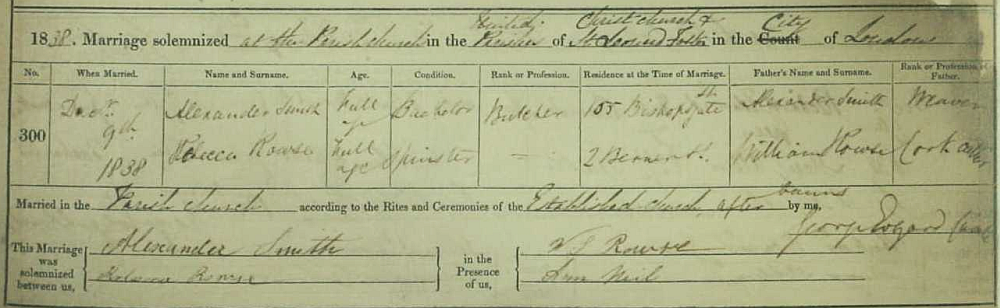 1838. Marriage solemnized at the Parish church in the United Parishes of Christ church & St Leonard Foster in the City Count of London
No. When Married. Name and Surname. Age. Condition. Rank or Profession. Residence at the Time of Marriage. Father's Name and Surname. Rank or Profession of Father.
300 Decr. 9th 1838 Alexander Smith Full age Bachelor Butcher 155 Bishopsgate St Alexander Smith Weaver
Rebecca Rowse Full age Spinster — 2 Berner St. William Rowse Cork Cutter
Married in the Parish church according to the Rites and Ceremonies of the Established church, after banns by me,
George
This Marriage was solemnized between us, Alexander Smith in the Presence of us, Rowse
Rowse Ann